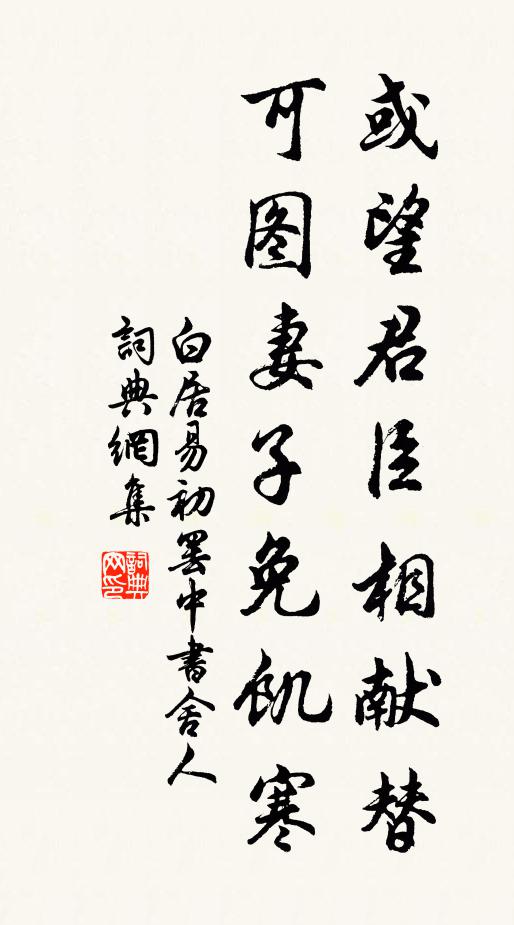 或望君臣相献替
可图妻子免饥寒
白居易初罢中書舍人
詞典網集
詞典
网印